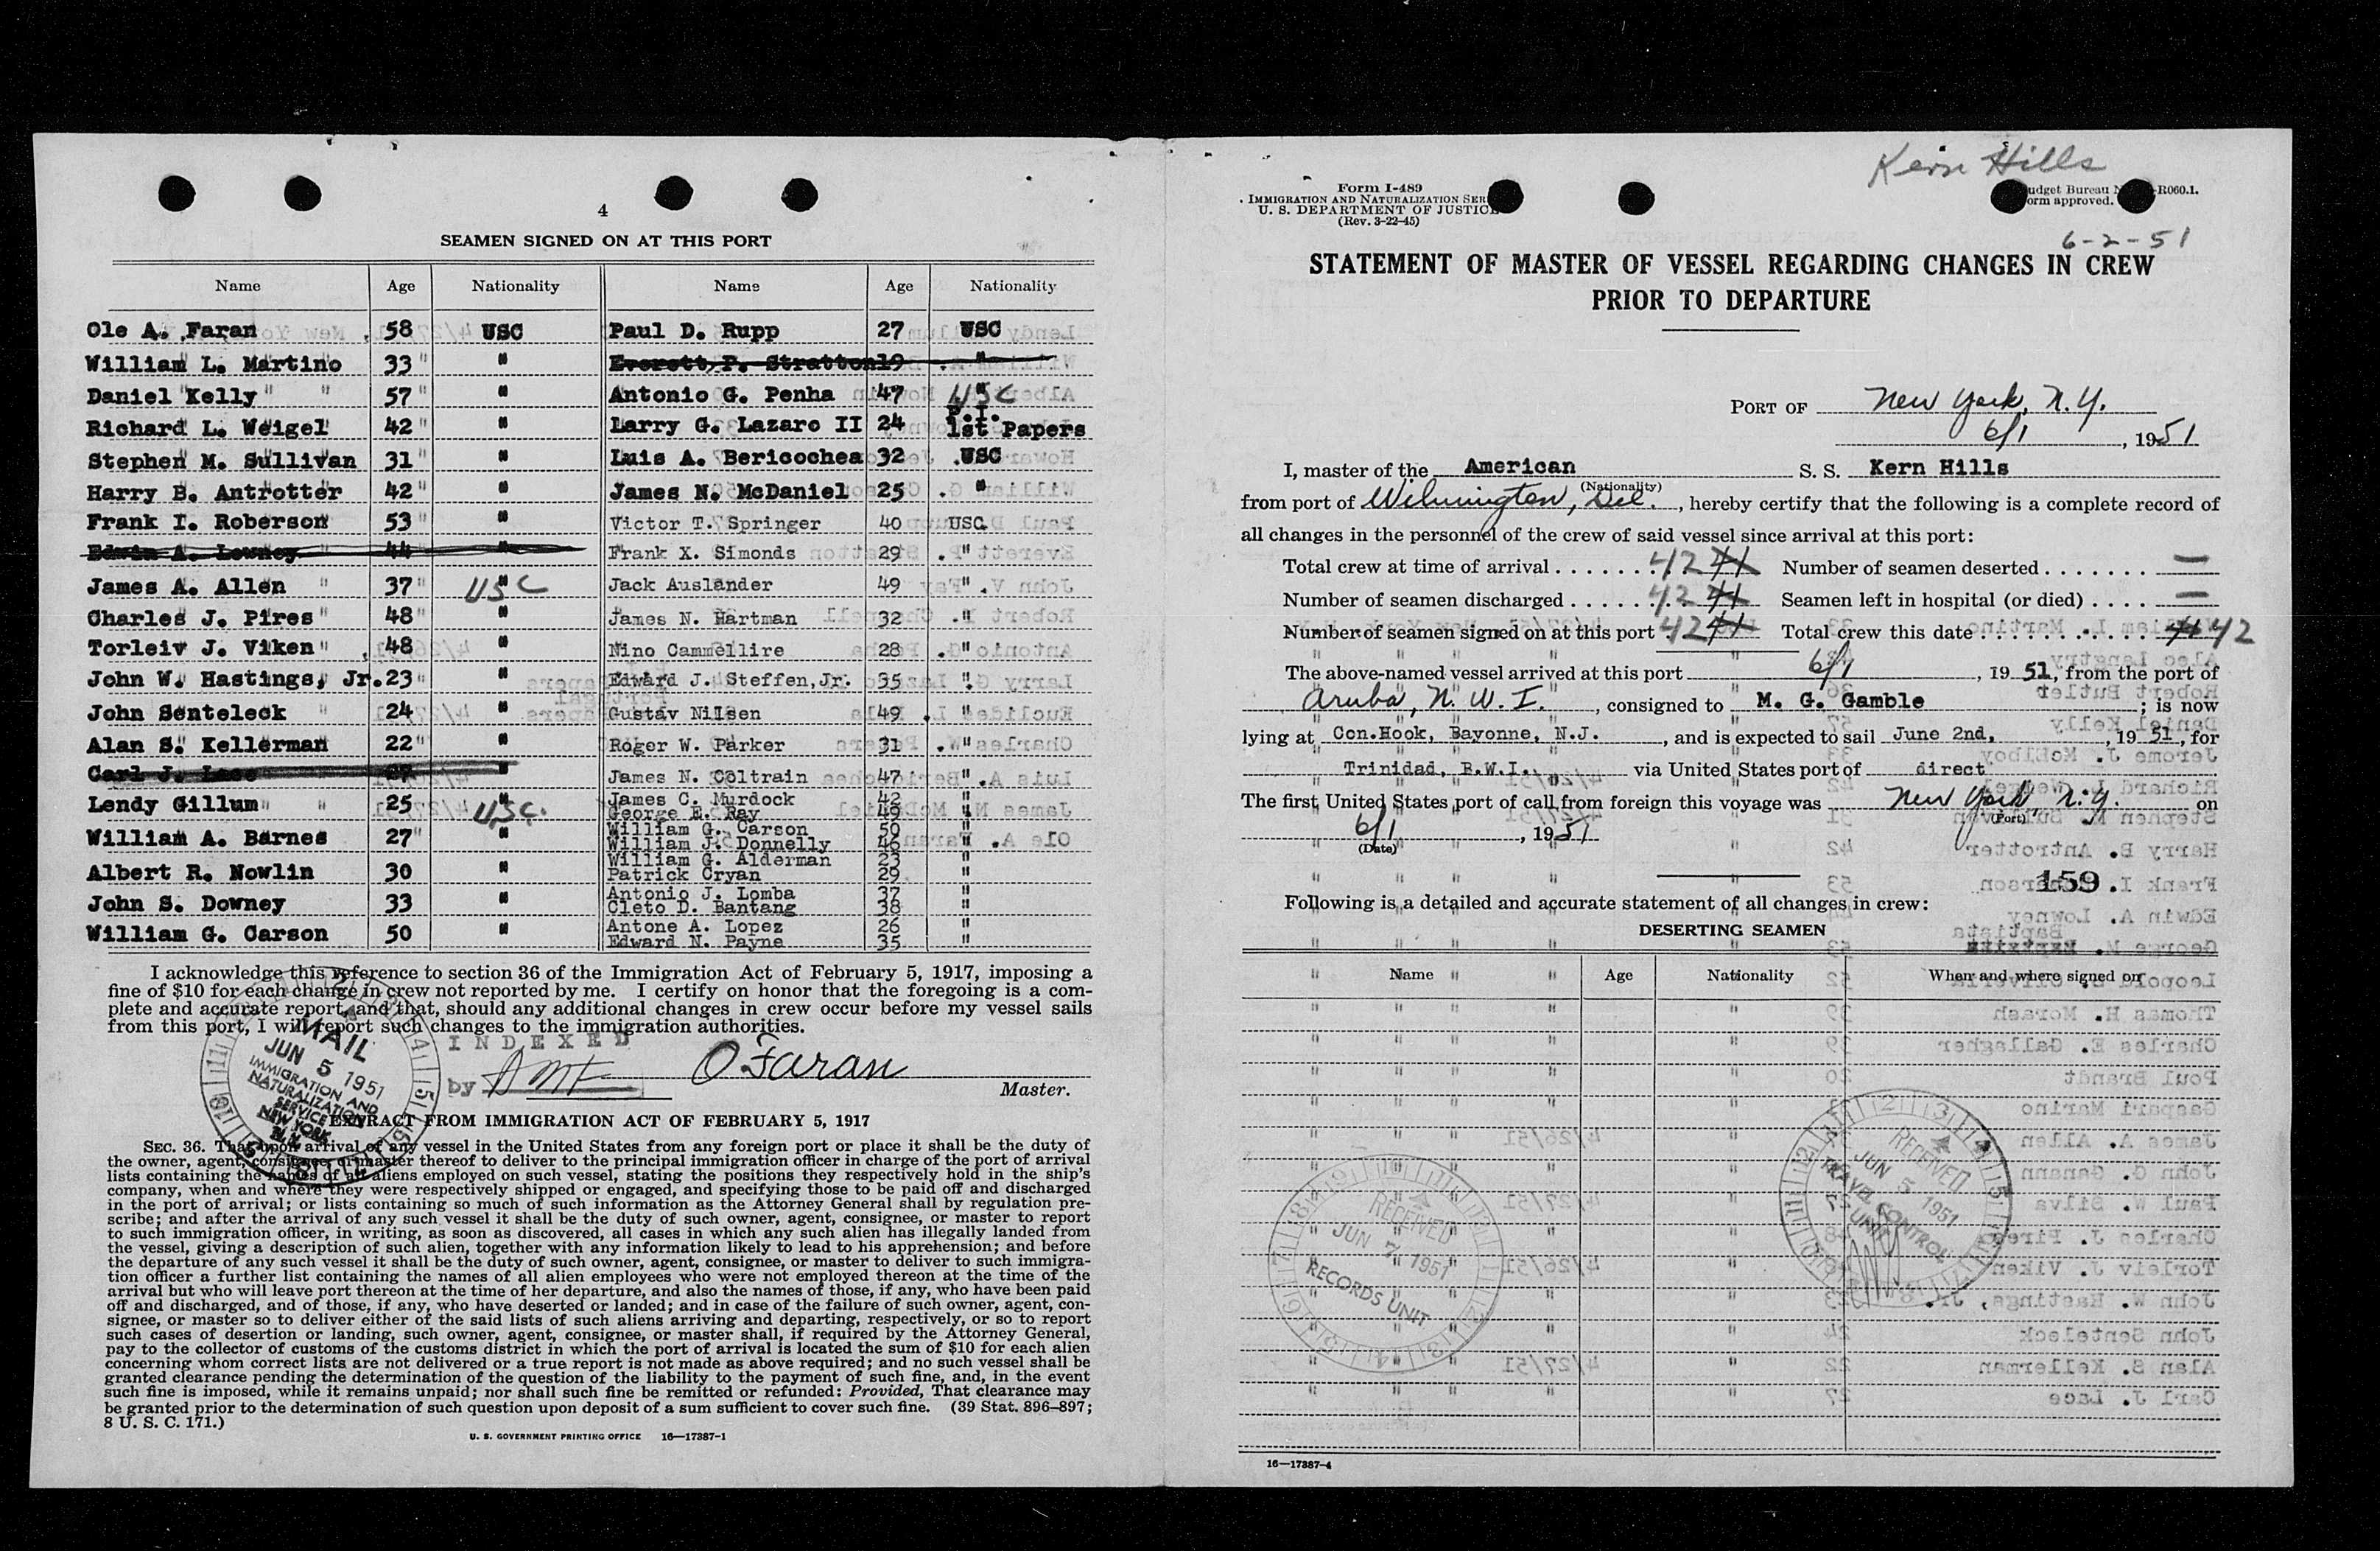 4
SEAMEN SIGNED ON AT THIS PORT
Name Age Nationality Name Age Nationality
Ole A. Faran 58 USC Paul D. Rupp 27 USC
William L. Martino 33 " Everett P. Stratton 19 "
Daniel Kelly 57 " Antonio G. Penha 47 USC
Richard L. Weigel 42 " Larry G. Lazaro II 24 P.I. 1st Papers
Stephen M. Sullivan 31 " Luis A. Bericochea 32 USC
Harry B. Antrotter 42 " James N. McDaniel 25 "
Frank I. Roberson 53 " Victor T. Springer 40 USC
Edwin A. Lowney 44 " Frank X. Simonds 29 "
James A. Allen 37 USC Jack Auslander 49 "
Charles J. Pires 48 " James N. Hartman 32 "
Torleiv J. Viken 48 " Nino Cammellire 28 "
John W. Hastings, Jr. 23 " Edward J. Steffen, Jr. 35 "
John Senteleck 24 " Gustav Nilsen 49 "
Alan S. Kellerman 22 " Roger W. Parker 31 "
Carl J. Lace 27 " James N. Coltrain 47 "
Lendy Gillum 25 USC. James C. Murdock 42 "
George E. Ray 49 "
William G. Carson 50 "
William A. Barnes 27 " William J. Donnelly 46 "
William G. Alderman 23 "
Albert R. Nowlin 30 " Patrick Cryan 29 "
Antonio J. Lomba 37 "
John S. Downey 33 " Cleto D. Bantang 38 "
Antone A. Lopez 26 "
William G. Carson 50 " Edward N. Payne 35 "
I acknowledge this reference to section 36 of the Immigration Act of February 5, 1917, imposing a
fine of $10 for each change in crew not reported by me. I certify on honor that the foregoing is a com-
plete and accurate report, and that, should any additional changes in crew occur before my vessel sails
from this port, I will report such changes to the immigration authorities.
INDEXED
by O Faran
Master.
MAIL
JUN 5 1951
IMMIGRATION AND
NATURALIZATION
SERVICE
NEW YORK
N.Y.
EXTRACT FROM IMMIGRATION ACT OF FEBRUARY 5, 1917
SEC. 36. That upon arrival of any vessel in the United States from any foreign port or place it shall be the duty of
the owner, agent, consignee, or master thereof to deliver to the principal immigration officer in charge of the port of arrival
lists containing the names of all aliens employed on such vessel, stating the positions they respectively hold in the ship's
company, when and where they were respectively shipped or engaged, and specifying those to be paid off and discharged
in the port of arrival; or lists containing so much of such information as the Attorney General shall by regulation pre-
scribe; and after the arrival of any such vessel it shall be the duty of such owner, agent, consignee, or master to report
to such immigration officer, in writing, as soon as discovered, all cases in which any such alien has illegally landed from
the vessel, giving a description of such alien, together with any information likely to lead to his apprehension; and before
the departure of any such vessel it shall be the duty of such owner, agent, consignee, or master to deliver to such immigra-
tion officer a further list containing the names of all alien employees who were not employed thereon at the time of the
arrival but who will leave port thereon at the time of her departure, and also the names of those, if any, who have been paid
off and discharged, and of those, if any, who have deserted or landed; and in case of the failure of such owner, agent, con-
signee, or master so to deliver either of the said lists of such aliens arriving and departing, respectively, or so to report
such cases of desertion or landing, such owner, agent, consignee, or master shall, if required by the Attorney General,
pay to the collector of customs of the customs district in which the port of arrival is located the sum of $10 for each alien
concerning whom correct lists are not delivered or a true report is not made as above required; and no such vessel shall be
granted clearance pending the determination of the question of the liability to the payment of such fine, and, in the event
such fine is imposed, while it remains unpaid; nor shall such fine be remitted or refunded: Provided, That clearance may
be granted prior to the determination of such question upon deposit of a sum sufficient to cover such fine. (39 Stat. 896–897;
8 U. S. C. 171.)
U. S. GOVERNMENT PRINTING OFFICE 16—17387-1
Kern Hills
Form I-489
IMMIGRATION AND NATURALIZATION SER
U. S. DEPARTMENT OF JUSTICE
(Rev. 3-22-45)
udget Bureau R060.1.
orm approved.
6-2-51
STATEMENT OF MASTER OF VESSEL REGARDING CHANGES IN CREW
PRIOR TO DEPARTURE
PORT OF New York, N.Y.
6/1, 1951
I, master of the American S. S. Kern Hills
(Nationality)
from port of Wilmington, Del., hereby certify that the following is a complete record of
all changes in the personnel of the crew of said vessel since arrival at this port:
Total crew at time of arrival 42 41 Number of seamen deserted —
Number of seamen discharged 42 41 Seamen left in hospital (or died) —
Number of seamen signed on at this port 42 41 Total crew this date 41 42
The above-named vessel arrived at this port 6/1, 1951, from the port of
Aruba, N.W.I., consigned to M. G. Gamble; is now
lying at Con.Hook, Bayonne, N.J., and is expected to sail June 2nd, 1951, for
Trinidad, B.W.I. via United States port of direct
The first United States port of call from foreign this voyage was New York, N.Y. on
(Port)
6/1, 1951
(Date)
159
Following is a detailed and accurate statement of all changes in crew:
DESERTING SEAMEN
Name Age Nationality When and where signed on
RECEIVED
JUN 5 1951
TRAVEL CONTROL
UNIT
RECEIVED
JUN 7 1951
RECORDS UNIT
16—17387-4